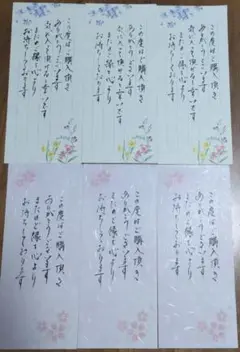 この度はご購入頂き
ありがとうございます
気に入って頂けると幸いです
またのご縁を心より
お待ちしております
この度はご購入頂き
ありがとうございます
気に入って頂けると幸いです
またのご縁を心より
お待ちしております
この度はご購入頂き
ありがとうございます
気に入って頂けると幸いです
またのご縁を心より
お待ちしております
この度はご購入頂き
ありがとうございます
またのご縁を心より
お待ちしております
この度はご購入頂き
ありがとうございます
またのご縁を心より
お待ちしております
この度はご購入頂き
ありがとうございます
またのご縁を心より
お待ちしております